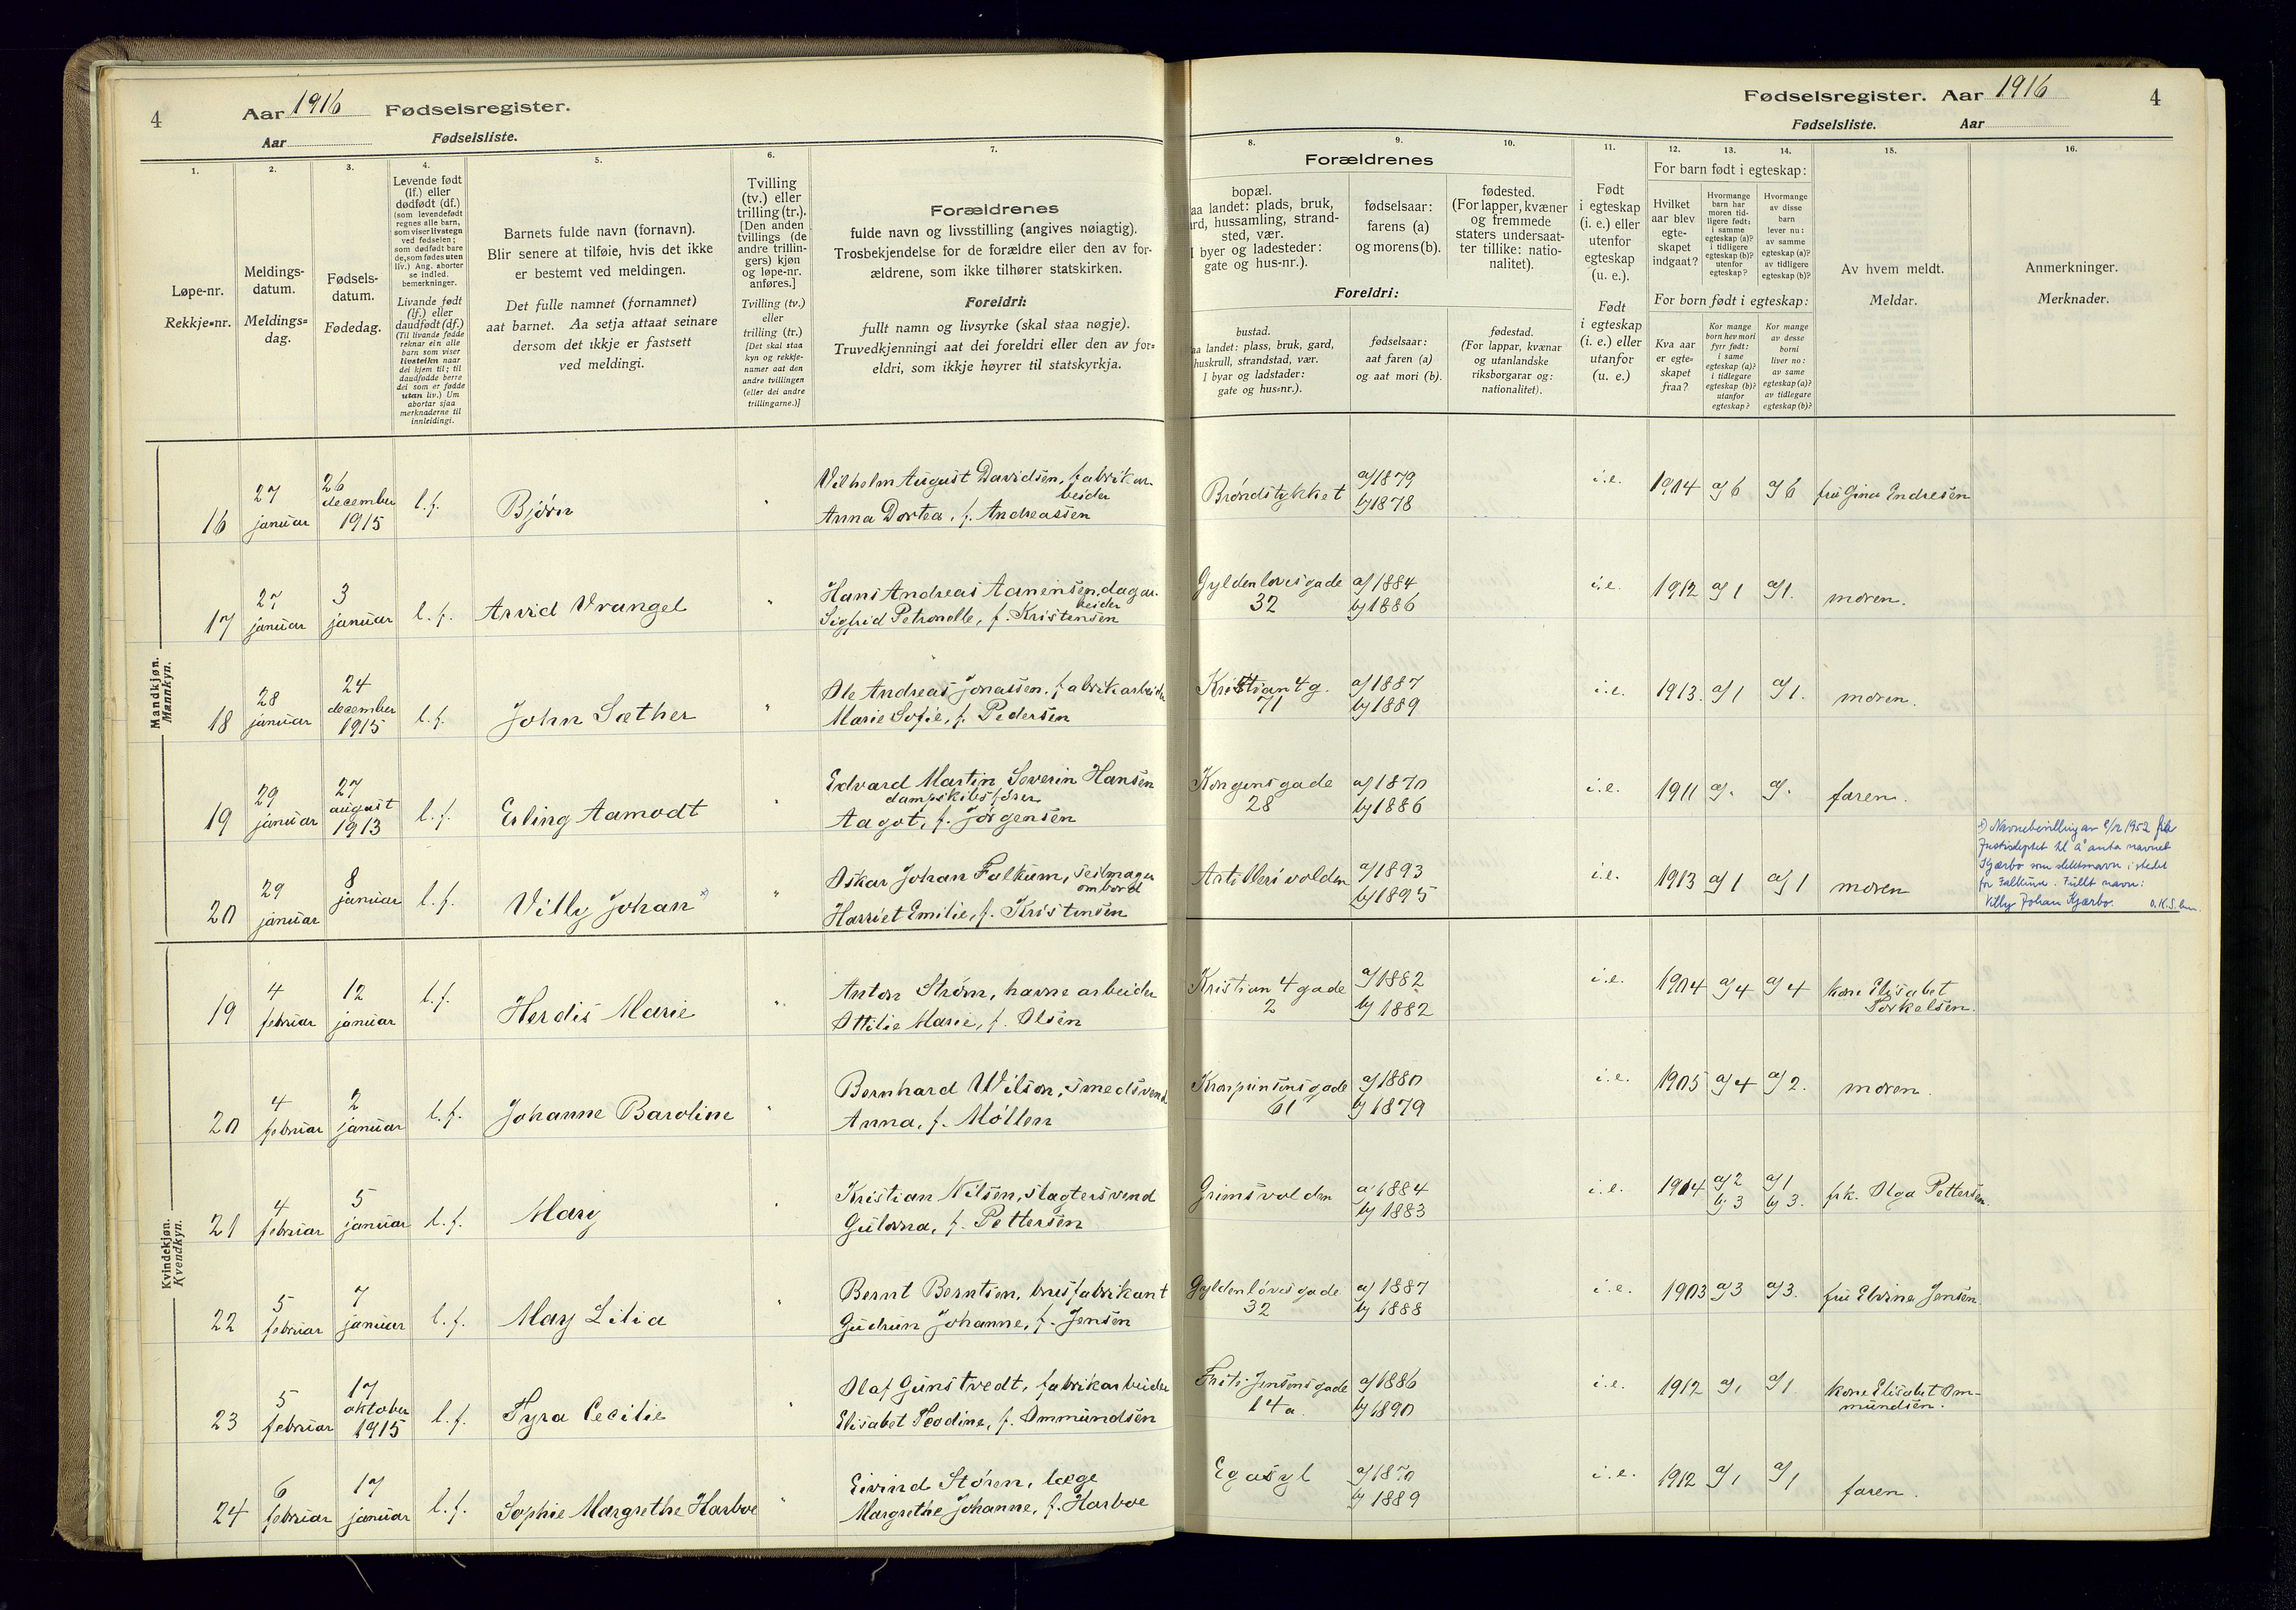 4
Aar 1916 Fødselsregister.
Aar Fødselsliste.
1.
2.
3.
4.
5.
6.
7.
Løpe-nr.
Rekkje-nr.
Meldings-
datum.
Meldings-
dag.
Fødsels-
datum.
Fødedag.
Levende født
(lf.) eller
dødfødt (df.)
(som levendefødt
regnes alle barn,
som viser livstegn
ved fødselen;
som dødfødt bare
de, som fødes uten
liv.) Ang. aborter
se indled.
bemerkninger.
Livande født
(lf.) eller
daudfødt (df.)
(Til livande fødde
reknar ein alle
barn som viser
livsteikn naar
dei kjem til; til
daudfødde berre
dei som er fødde
utan liv.) Um
abortar sjaa
merknaderne til
innleidingi.
Barnets fulde navn (fornavn).
Blir senere at tilføie, hvis det ikke
er bestemt ved meldingen.
Det fulle namnet (fornamnet)
aat barnet. Aa setja attaat seinare
dersom det ikkje er fastsett
ved meldingi.
Tvilling
(tv.) eller
trilling (tr.).
[Den anden
tvillings (de
andre trillin-
gers) kjøn
og løpe-nr.
anføres.]
Tvilling (tv.)
eller
trilling (tr.)
[Det skal staa
kyn og rekkje-
namer aat den
andre tvillingen
(eller dei andre
trillingarne.)]
Forældrenes
fulde navn og livsstilling (angives nøiagtig).
Trosbekjendelse for de forældre eller den av for-
ældrene, som ikke tilhører statskirken.
Foreldri:
fullt namn og livsyrke (skal staa nøgje).
Truvedkjenningi aat dei foreldri eller den av for-
eldri, som ikkje høyrer til statskyrkja.
Mandkjøn.
Mannkyn.
16
27
januar
26
december
1915
l.f.
Bjørn
"
Vilhelm August Davidsen, fabrikar-
beider
Anna Dortea, f. Andreassen
17
27
januar
3
januar
l.f.
Arvid Vrangel
"
Hans Andreas Aanensen, dagar-
beider
Sigfrid Petronelle, f. Kristensen
18
28
januar
24
december
1915
l.f.
John Sæther
"
Ole Andreas Jonassen, fabrikarbeider
Marie Sofie, f. Pedersen
19
29
januar
27
august
1913
l.f.
Erling Aamodt
"
Edvard Martin Severin Hansen
dampskibsfører
Aagot, f. Jørgensen
20
29
januar
8
januar
l.f.
Villy Johan x)
"
Oskar Johan Falkum, seilmager
ombord
Harriet Emilie, f. Kristensen
Kvindekjøn.
Kvendkyn.
19
4
februar
12
januar
l.f.
Herdis Marie
"
Anton Strøm, havnearbeider
Ottilie Marie, f. Olsen
20
4
februar
2
januar
l.f.
Johanne Baroline
"
Bernhard Wilson, smedsvend
Anna, f. Møllen
21
4
februar
5
januar
l.f.
Mary
"
Kristian Nilsen, slagtersvend
Gulovna, f. Pettersen
22
5
februar
7
januar
l.f.
May Lilia
"
Bernt Berntsen, brusfabrikant
Gudrun Johanne, f. Jensen
23
5
februar
17
oktober
1915
l.f.
Tyra Cecilie
"
Olaf Gunstvedt, fabrikarbeider
Elisabet Teodine, f. Ommundsen
24
6
februar
17
januar
l.f.
Sophie Margrethe Harboe
"
Eivind Støren, læge
Margrethe Johanne, f. Harboe
Fødselsregister. Aar 1916
4
Fødselsliste. Aar
8.
9.
10.
11.
12.
13.
14.
15.
16.
Forældrenes
bopæl.
aa landet: plads, bruk,
rd, hussamling, strand-
sted, vær.
I byer og ladesteder:
gate og hus-nr.).
fødselsaar:
farens (a)
og morens (b).
fødested.
(For lapper, kvæner
og fremmede
staters undersaat-
ter tillike: natio-
nalitet).
Foreldri:
bustad.
aa landet: plass, bruk, gard,
huskrull, strandstad, vær.
I byar og ladstader:
gate og hus-nr.).
fødselsaar:
aat faren (a)
og aat mori (b).
fødestad.
(For lappar, kvænar
og utanlandske
riksborgarar og:
nationalitet).
Født
i egteskap
(i. e.) eller
utenfor
egteskap
(u. e.).
Født
i egteskap
(i. e.) eller
utanfor
(u. e.)
For barn født i egteskap:
Hvilket
aar blev
egte-
skapet
indgaat?
Hvormange
barn har
moren tid-
ligere født:
i samme
egteskap (a)?
i tidligere
egteskap (b)?
utenfor
egteskap?
Hvormange
av disse
barn
lever nu:
av samme
egteskap (a)?
av tidligere
egteskap (b)?
For born født i egteskap:
Kva aar
er egte-
skapet
fraa?
Kor mange
born hev mori
fyrr født:
i same
egteskap (a)?
i tidlegare
egteskap (b)?
utanfor
egteskap?
Kor mange
av desse
borni
liver no:
av same
egteskap (a)?
av tidlegare
egteskap (b)?
Av hvem meldt.
Meldar.
Anmerkninger.
Merknader.
Brøndstykket
a) 1879
b) 1878
i.e.
1904
a) 6
a) 6
fru Gina Endresen
Gyldenløvesgade
32
a) 1884
b) 1886
i.e.
1912
a) 1
a) 1.
moren.
Kristian 4 g.
71
a) 1887
b) 1889
i.e.
1913.
a) 1
a) 1.
moren.
Kongensgade
28
a) 1870
b) 1886
i.e.
1911
a) .
a) .
faren.
Artillerivolden
a) 1893
b) 1895
i.e.
1913
a) 1
a) 1
moren
x) Navnebevilling av 1952 fra
Justisdeptet til å anta navnet
Kjærbo som slektsnavn i stedet
for Falkum. Fullt navn:
Villy Johan Kjærbo.
Kristian 4 gade
2
a) 1882
b) 1882
i.e.
1904
a) 4
a) 4
kone Elisabet
Torkelsen.
Kronprinsensgade
61
a) 1880
b) 1879
i.e.
1905
a) 4
a) 2.
moren.
Grimsvolden
a) 1884
b) 1883
i.e.
1914
a) 2
b) 3
a) 1
b) 3.
frk. Olga Pettersen.
Gyldenløvesgade
32
a) 1887
b) 1888
i.e.
1903
a) 3
a) 3.
fru Elvine Jensen
Jensensgade
14a
a) 1886
b) 1890
i.e.
1912
a) 1
a) 1
kone Elisabet Om-
mundsen.
Egasyl
a) 1870
b) 1889
i.e.
1912
a) 1
a) 1
faren.